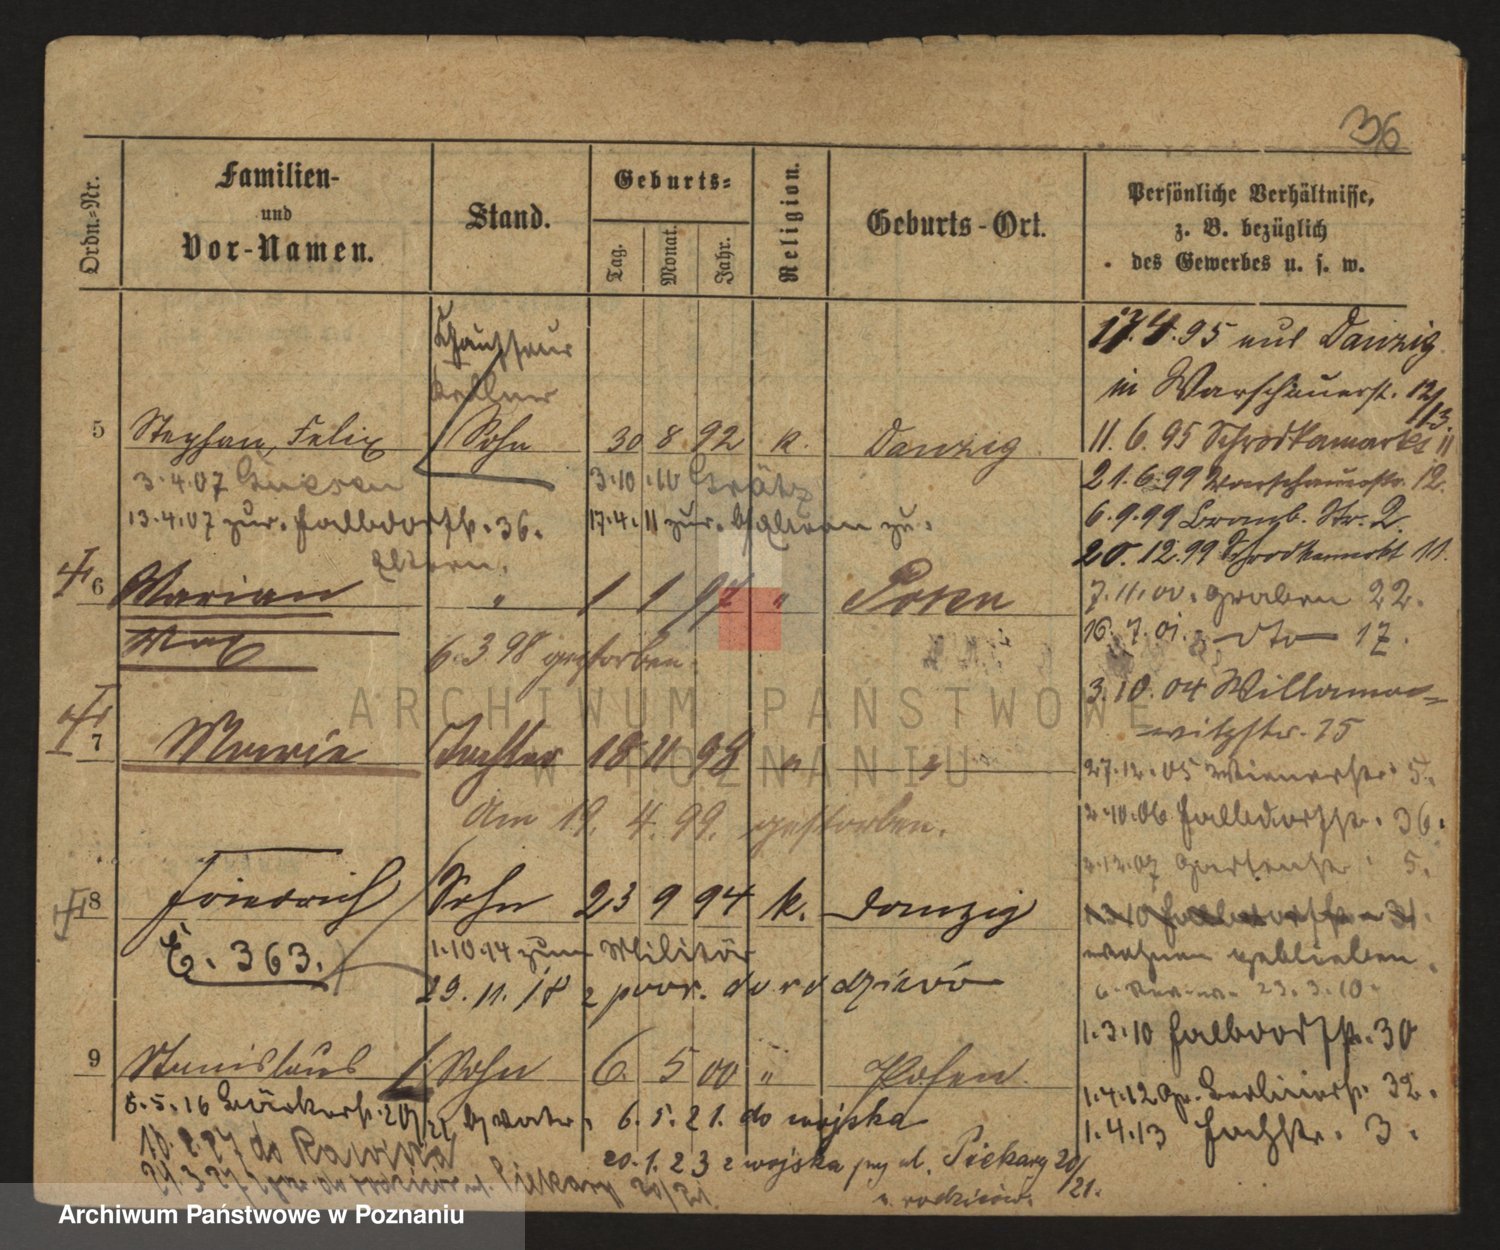 36
Ordn.-Nr.
Familien-
und
Vor-Namen.
Stand.
Geburts-
Tag.
Monat.
Jahr.
Religion.
Geburts-Ort.
Persönliche Verhältnisse,
z. B. bezüglich
des Gewerbes u. s. w.
Chauffeur
Kellner
5 Stephan, Felix Sohn 30 8 92 k. Danzig
3.4.07 Gnesen 3.10.10 Grätz
13.4.07 zur. Halbdorfstr. 36. 17.4.11 zur.
Eltern.
6 Marian " 1 1 97 " Posen
Max 6.3 98 gestorben.
7 Marie Tochter 18 11 98 " "
Am 19. 4. 99. gestorben.
8 Friedrich Sohn 23 9 94 k. Danzig
E. 363. 1.10.14 zum Militär
29. 11. 18 z powr. do rodziców
9 Stanislaus Sohn 6. 5 00 " Posen
5.5.16 Bäckerstr. 20/21 b/ Vater. 6.5.21. do wojska
10.2.27 do Rawicza
20.1.23 z wojska przy ul. Piekary 20/21.
u rodziców.
Piekary 20/21.
17.4.95 aus Danzig
in Warschauerst. 12/13.
11.6.95 Schrodkamarkt 11
21.6.99 Warschauerstr. 12.
6.9.99 Bromb. Str. 2.
20.12.99 Schrodkamarkt 11.
7.11.00. Graben 22.
16.7.01. dto 17.
3.10.04 Willamo-
witzstr. 25
27.12.05 Wienerstr. 5.
2.10.06 Halbdorfstr. 36.
2.12.07 Gartenstr. 5.
wohnen geblieben.
23.3.10.
1.3.10 Halbdorfstr. 30
1.4.12 Gr. Berlinerstr. 32.
1.4.13 Fachstr. 3.
ARCHIWUM PAŃSTWOWE
W POZNANIU
Archiwum Państwowe w Poznaniu